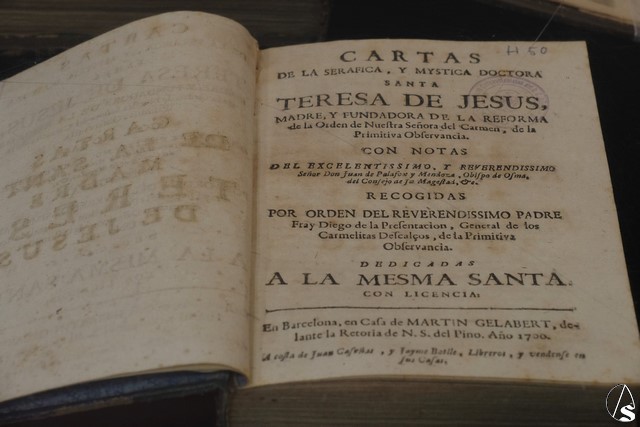 H 50
CARTAS
DE LA SERAFICA, Y MYSTICA DOCTORA
SANTA
TERESA DE JESUS,
MADRE, Y FUNDADORA DE LA REFORMA
de la Orden de Nuestra Señora del Carmen, de la
Primitiva Observancia.
CON NOTAS
DEL EXCELENTISSIMO, Y REVERENDISSIMO
Señor Don Juan de Palafox y Mendoza, Obispo de Osma,
del Consejo de su Magestad, &c.
RECOGIDAS
POR ORDEN DEL REVERENDISSIMO PADRE
Fray Diego de la Presentacion, General de los
Carmelitas Descalços, de la Primitiva
Observancia.
DEDICADAS
A LA MESMA SANTA.
CON LICENCIA:
En Barcelona, en Casa de MARTIN GELABERT, de-
lante la Retoria de N. S. del Pino. Año 1700.
A costa de Juan Caseñas, y Jayme Batlle, Libreros, y vendense en
sus Casas.